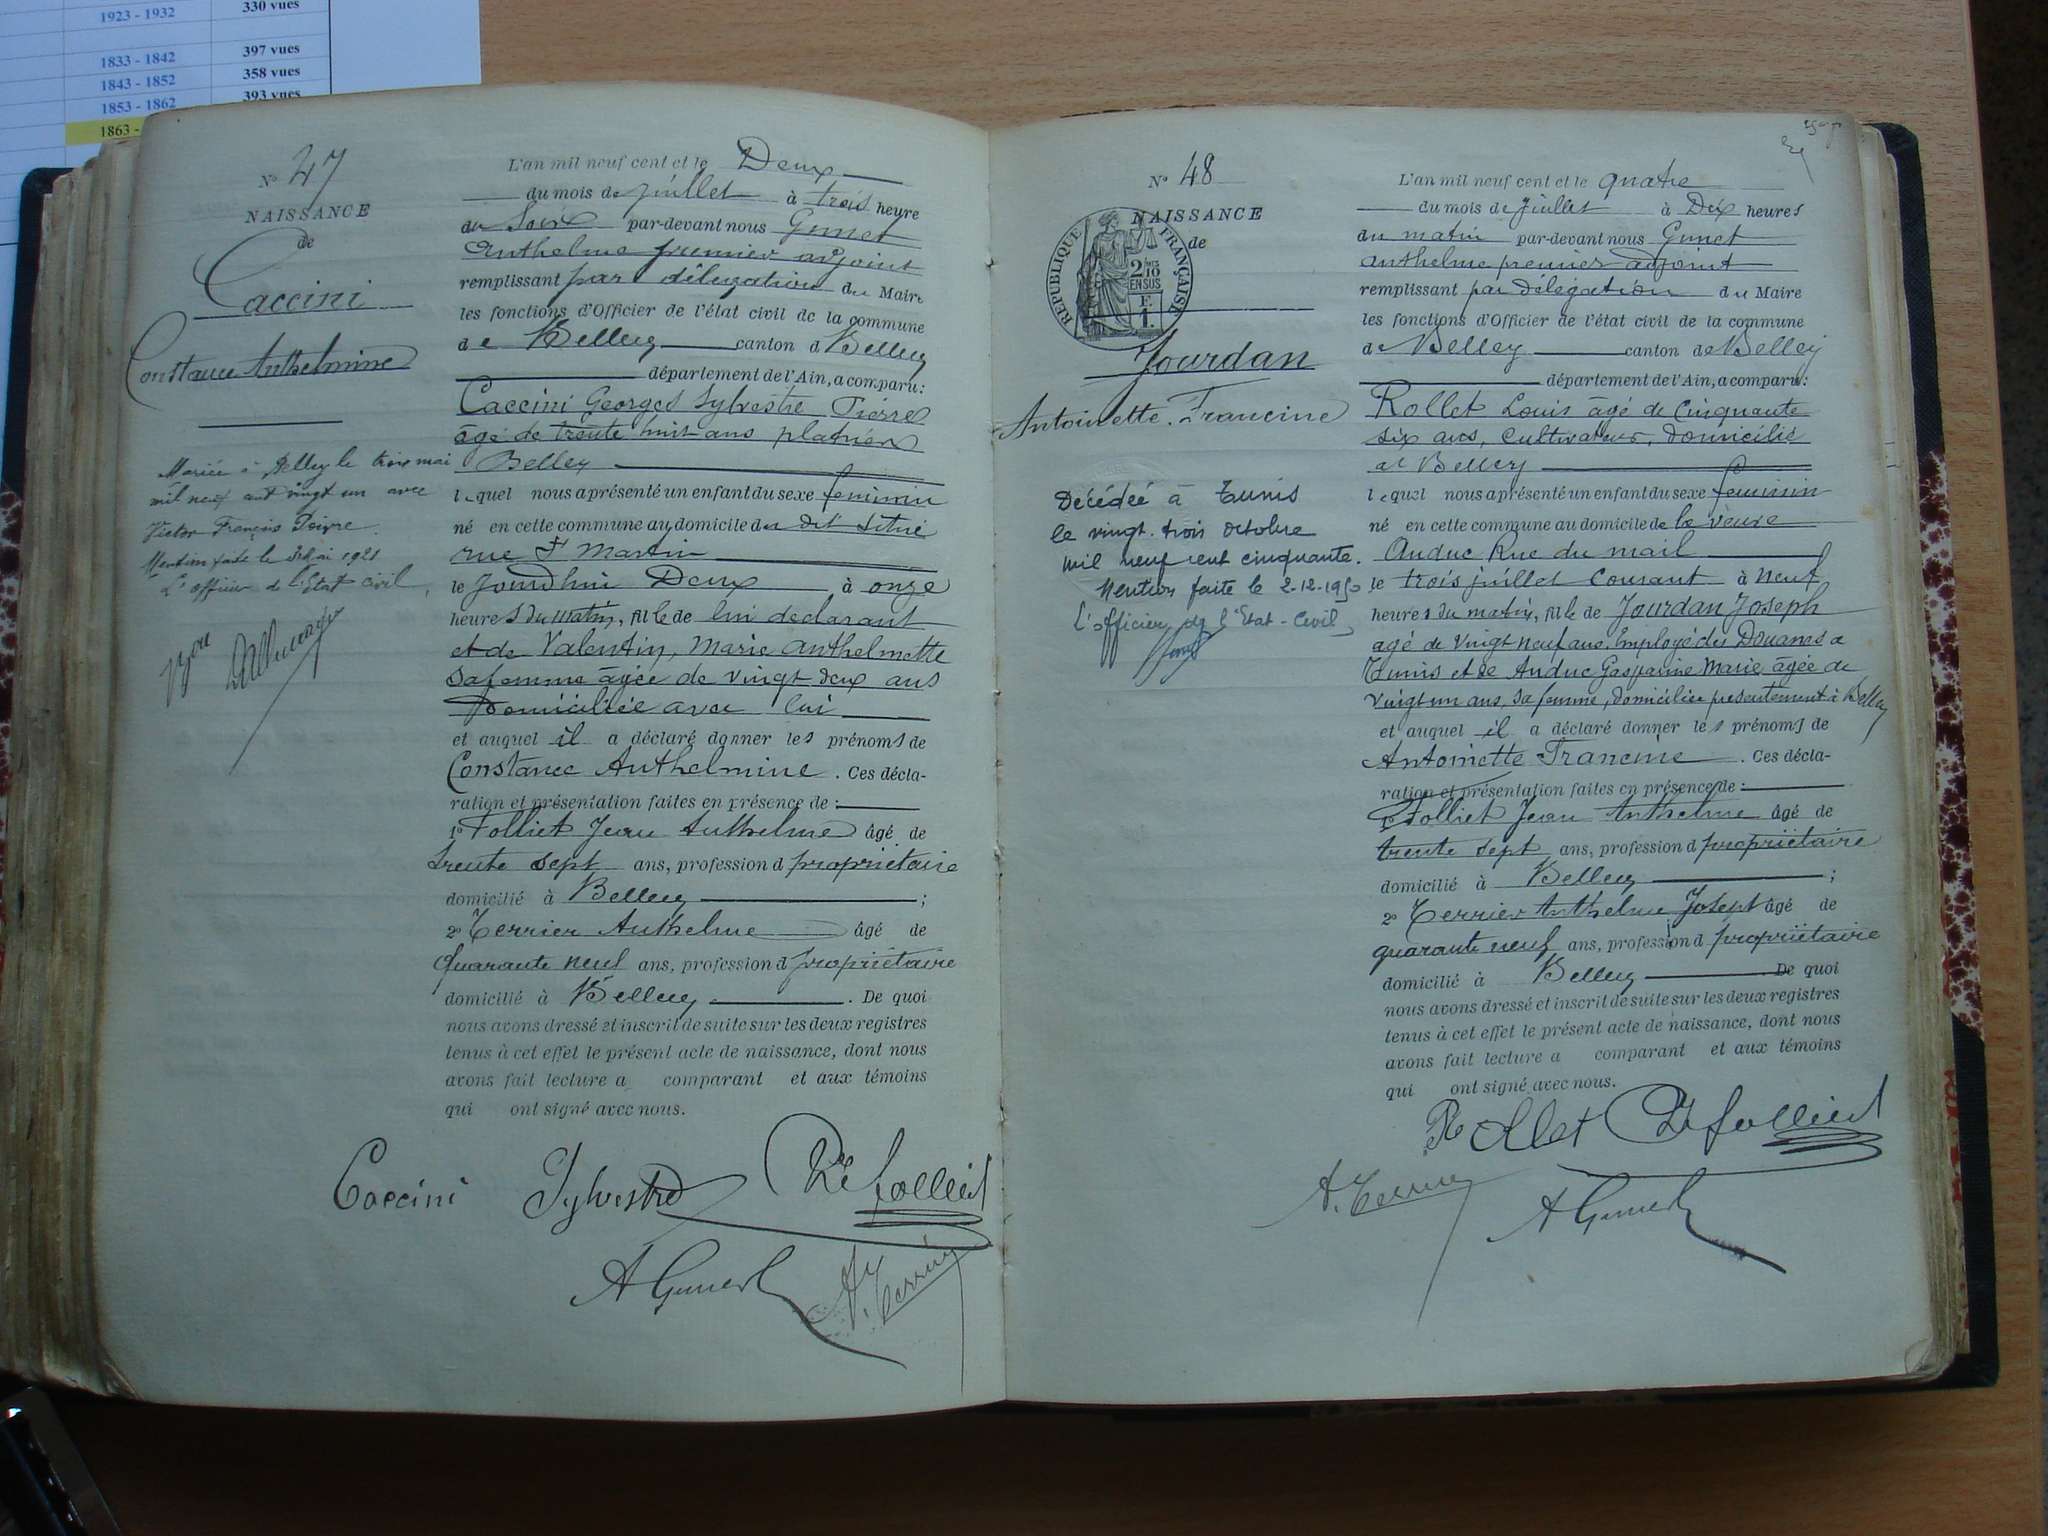 1923 - 1932 330 vues
1833 - 1842 397 vues
1843 - 1852 358 vues
1853 - 1862 393 vues
1863 -
N° 47
NAISSANCE
de
Caccini
Constance Anthelmine
Mariée à Belley le trois mai
mil neuf cent vingt un avec
Victor François Poivre.
Mention faite le 3 Mai 1921
L'officier de l'Etat civil,
L'an mil neuf cent et le Deux
du mois de juillet à trois heure
du Soir par-devant nous Gunet
Anthelme premier adjoint
remplissant par délégation du Maire
les fonctions d'Officier de l'état civil de la commune
de Belley canton d Belley
département de l'Ain, a comparu:
Caccini Georges Sylvestre Pierre
âgé de trente huit ans platrier
Belley
lequel nous a présenté un enfant du sexe feminin
né en cette commune au domicile du dit situé
rue St Martin
le jourdhui Deux à onze
heures du matin, fille de lui declarant
et de Valentin, Marie Anthelmette
sa femme âgée de vingt deux ans
Domiciliée avec lui
et auquel il a déclaré donner les prénoms de
Constance Anthelmine. Ces décla-
ration et présentation faites en présence de :
1° Folliet Jean Anthelme âgé de
trente sept ans, profession d propriétaire
domicilié à Belley ;
2° Terrier Anthelme âgé de
Quarante neuf ans, profession d propriétaire
domicilié à Belley . De quoi
nous avons dressé et inscrit de suite sur les deux registres
tenus à cet effet le présent acte de naissance, dont nous
avons fait lecture a comparant et aux témoins
qui ont signé avec nous.
Caccini Sylvestre folliet
A Gunet A. Terrier
N° 48
NAISSANCE
de
RÉPUBLIQUE FRANÇAISE
2/10
EN SUS
F.
1.
Jourdan
Antoinette. Francine
Décédée à Tunis
le vingt. trois octobre
mil neuf cent cinquante.
Mention faite le 2-12-1950
L'officier de l'Etat-Civil,
L'an mil neuf cent et le quatre
du mois de juillet à Dix heures
du matin par-devant nous Gunet
anthelme premier adjoint
remplissant par délégation du Maire
les fonctions d'Officier de l'état civil de la commune
de Belley canton de Belley
département de l'Ain, a comparu:
Rollet Louis âgé de Cinquante
six ans, Cultivateur, Domicilié
à Belley
lequel nous a présenté un enfant du sexe feminin
né en cette commune au domicile de la veuve
Anduc Rue du mail
le trois juillet courant à neuf
heures du matin, fille de Jourdan Joseph
agé de vingt neuf ans, Employé des Douanes a
Tunis et de Anduc Gasparine Marie âgée de
vingt un ans, sa femme, domiciliée presentement à Belley
et auquel il a déclaré donner les prénoms de
Antoinette Francine . Ces décla-
ration et présentation faites en présence de :
1° Folliet Jean Anthelme âgé de
trente sept ans, profession d propriétaire
domicilié à Belley ;
2° Terrier Anthelme Josept âgé de
quarante neuf ans, profession d propriétaire
domicilié à Belley De quoi
nous avons dressé et inscrit de suite sur les deux registres
tenus à cet effet le présent acte de naissance, dont nous
avons fait lecture a comparant et aux témoins
qui ont signé avec nous.
Rollet folliet
A. Terrier A Gunet